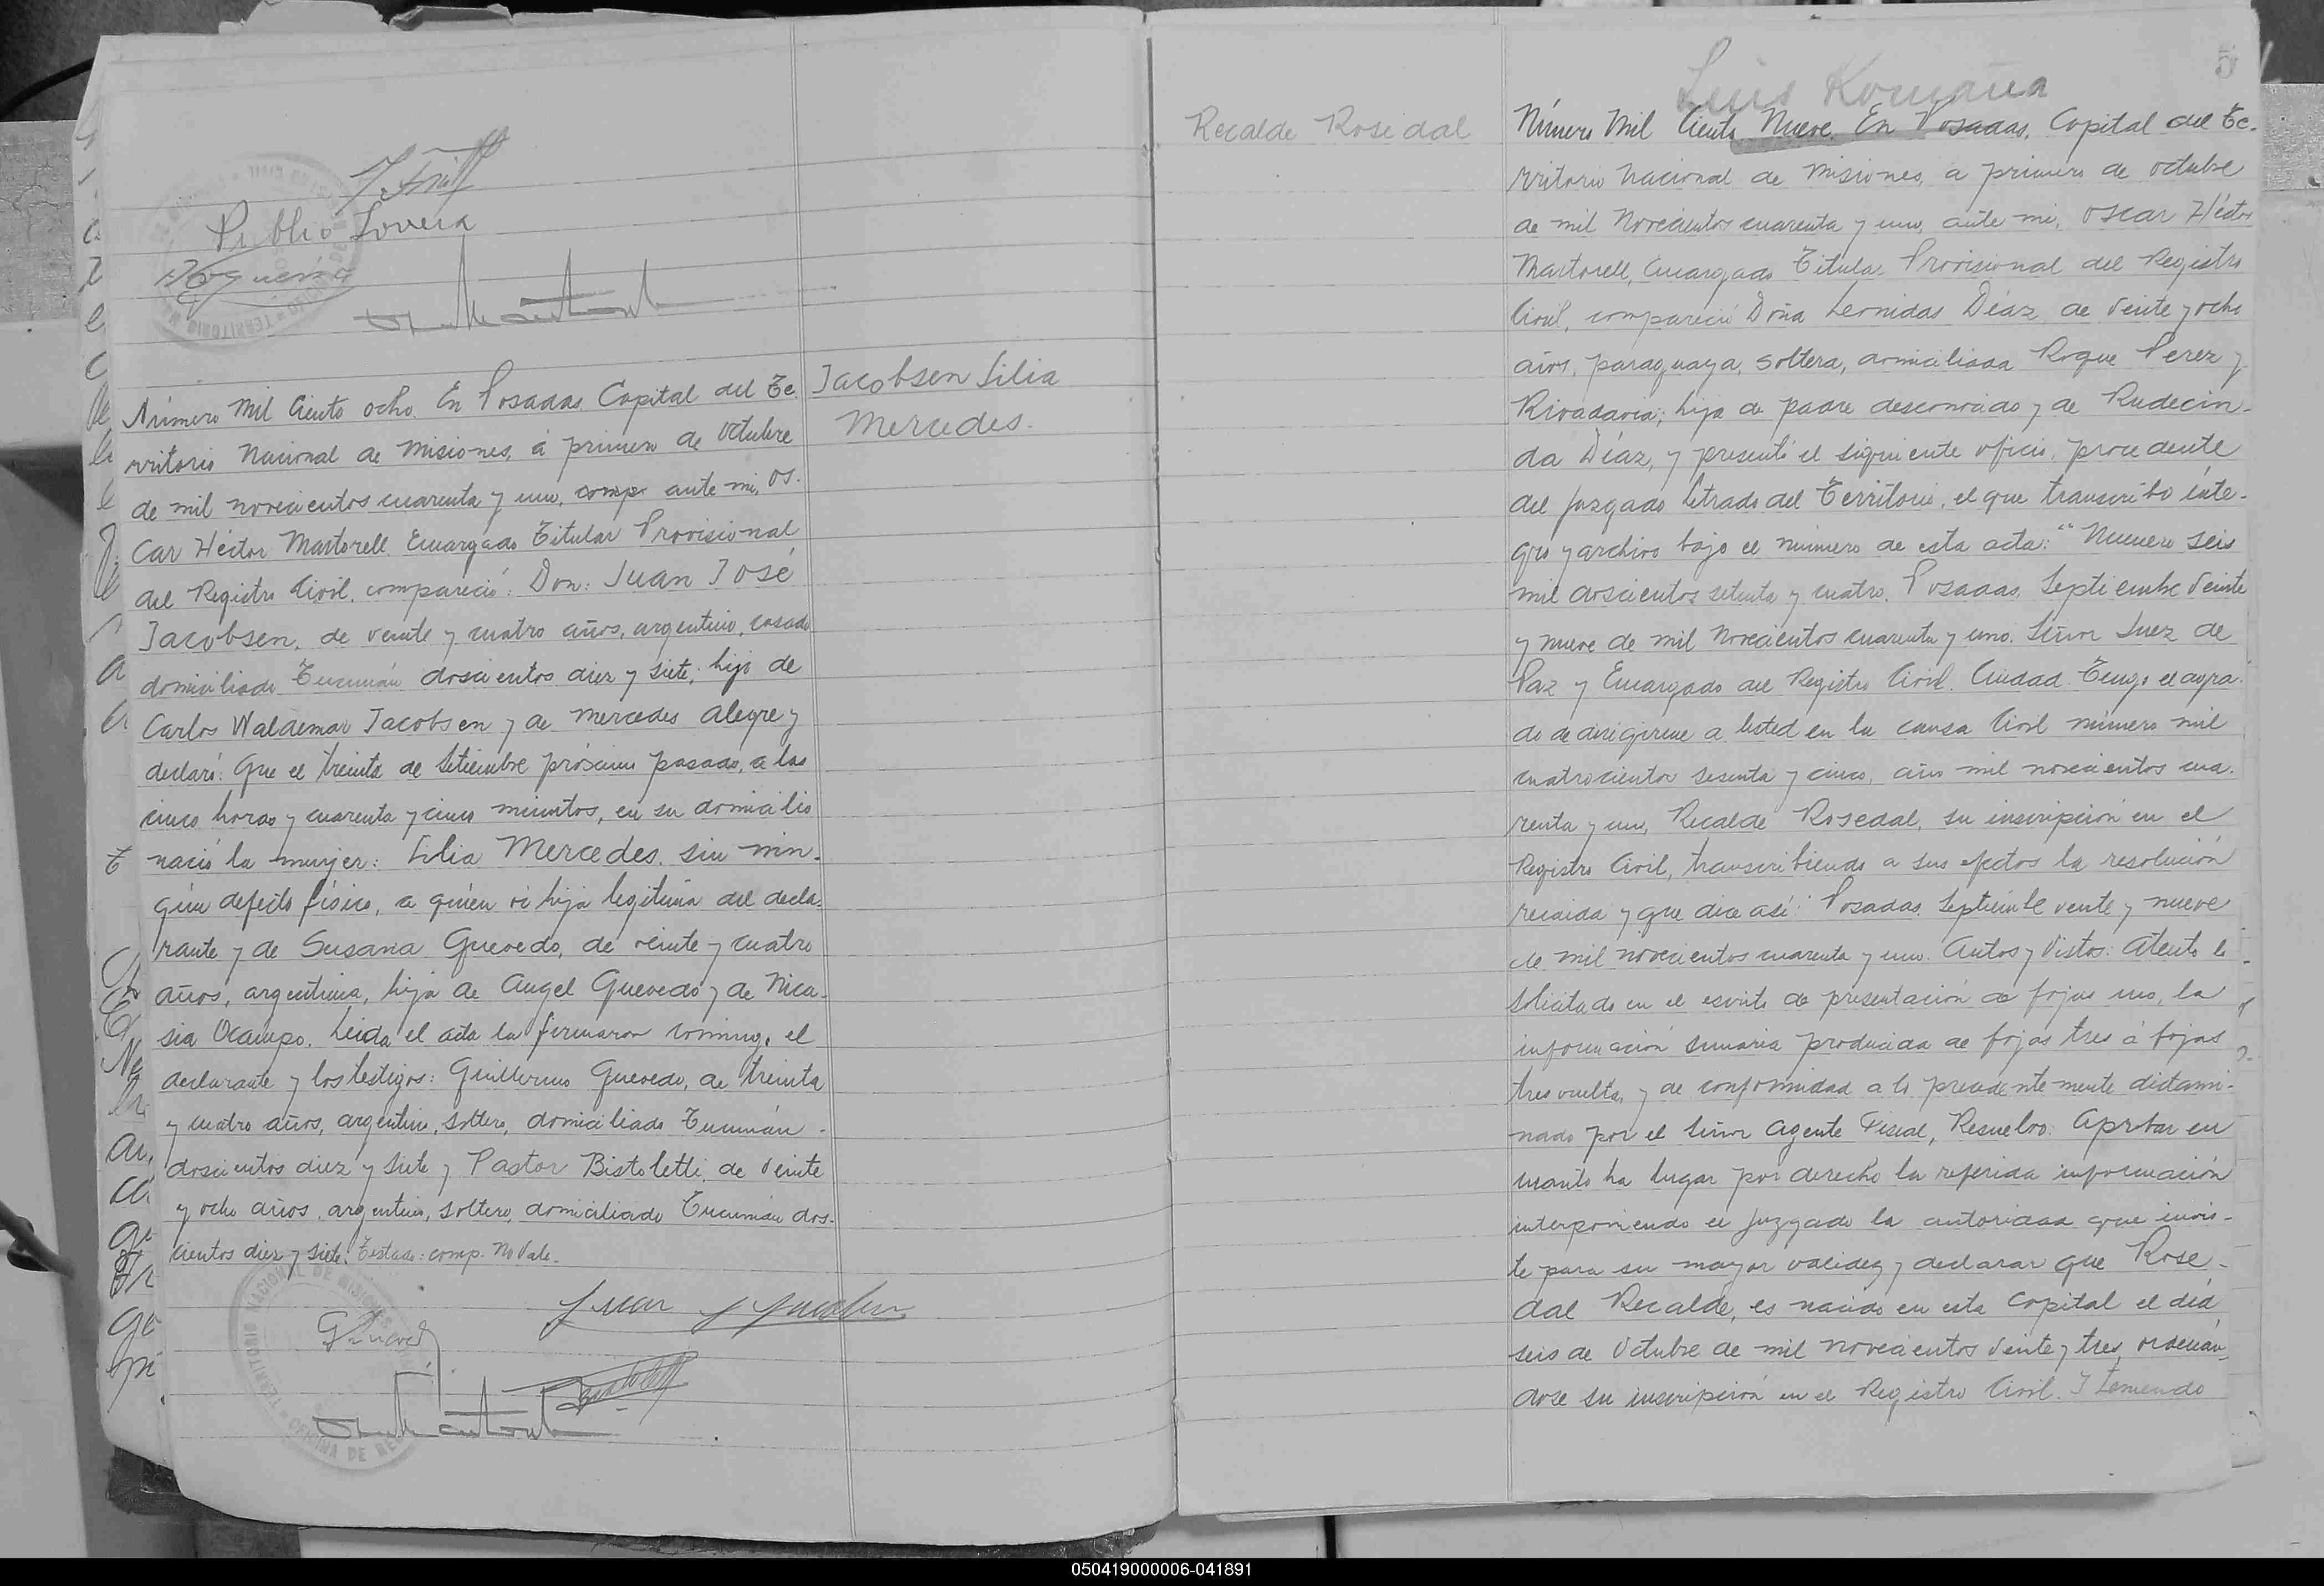 Publio Lovera
Número Mil Ciento ocho. En Posadas Capital del Te
rritorio Nacional de Misiones, á primero de Octubre
de mil novecientos cuarenta y uno, comp. ante mi, Os-
car Héctor Martorell Encargado Titular Provisional
del Registro Civil, compareció: Don: Juan José
Jacobsen, de veinte y cuatro años, argentino, casado
domiciliado Tucumán doscientos diez y siete; hijo de
Carlos Waldemar Jacobsen y de Mercedes Alegre y
declaró: Que el treinta de Setiembre próximo pasado, a las
cinco horas y cuarenta y cinco minutos, en su domicilio
nació la mujer: Lilia Mercedes. sin nin-
gún defecto físico, a quien vi hija legítima del decla-
rante y de Susana Quevedo, de veinte y cuatro
años, argentina, hija de Angel Quevedo y de Nica-
sia Ocampo. Leida el acta la firmaron conmigo el
declarante y los testigos: Guillermo Quevedo, de treinta
y cuatro años, argentino, soltero, domiciliado Tucumán
doscientos diez y siete y Pastor Bistoletti, de veinte
y ocho años, argentino, soltero, domiciliado Tucumán dos-
cientos diez y siete. Testado: comp. No Vale.
Jacobsen Lilia
Mercedes.
Recalde Rosedal
Luis Romaña
5
Número Mil Ciento Nueve. En Posadas, Capital del Te-
rritorio Nacional de Misiones, a primero de octubre
de mil Novecientos cuarenta y uno, ante mi, Oscar Héctor
Martorell, Encargado Titular Provisional del Registro
Civil, compareció Doña Leonidas Díaz, de veinte y ocho
años, paraguaya, soltera, domiciliada Roque Perez y
Rivadavia; hija de padre desconocido y de Rudecin-
da Díaz, y presentó el siguiente oficio, procedente
del Juzgado Letrado del Territorio, el que transcribo ínte-
gro y archivo bajo el número de esta acta: "Número seis
mil doscientos setenta y cuatro. Posadas, Septiembre veinte
y nueve de mil Novecientos cuarenta y uno. Señor Juez de
Paz y Encargado del Registro Civil. Ciudad. Tengo el agra-
do de dirigirme a Usted en la causa Civil número mil
cuatrocientos sesenta y cinco, año mil novecientos cua-
renta y uno, Recalde Rosedal, su inscripción en el
Registro Civil, transcribiendo a sus efectos la resolución
recaida y que dice así: "Posadas, Septiembre veinte y nueve
de mil novecientos cuarenta y uno. Autos y Vistos: Atento lo
solicitado en el escrito de presentación de fojas uno, la
información sumaria producida de fojas tres á fojas
tres vuelta, y de conformidad a lo precedentemente dictami-
nado por el Señor Agente Fiscal, Resuelvo: Aprobar en
cuanto ha lugar por derecho la referida información
interponiendo el Juzgado la autoridad que invis-
te para su mayor validez y declarar que Rose-
dal Recalde, es nacido en esta Capital el día
seis de Octubre de mil novecientos veinte y tres, ordenán-
dose su inscripción en el Registro Civil. Y teniendo
050419000006-041891